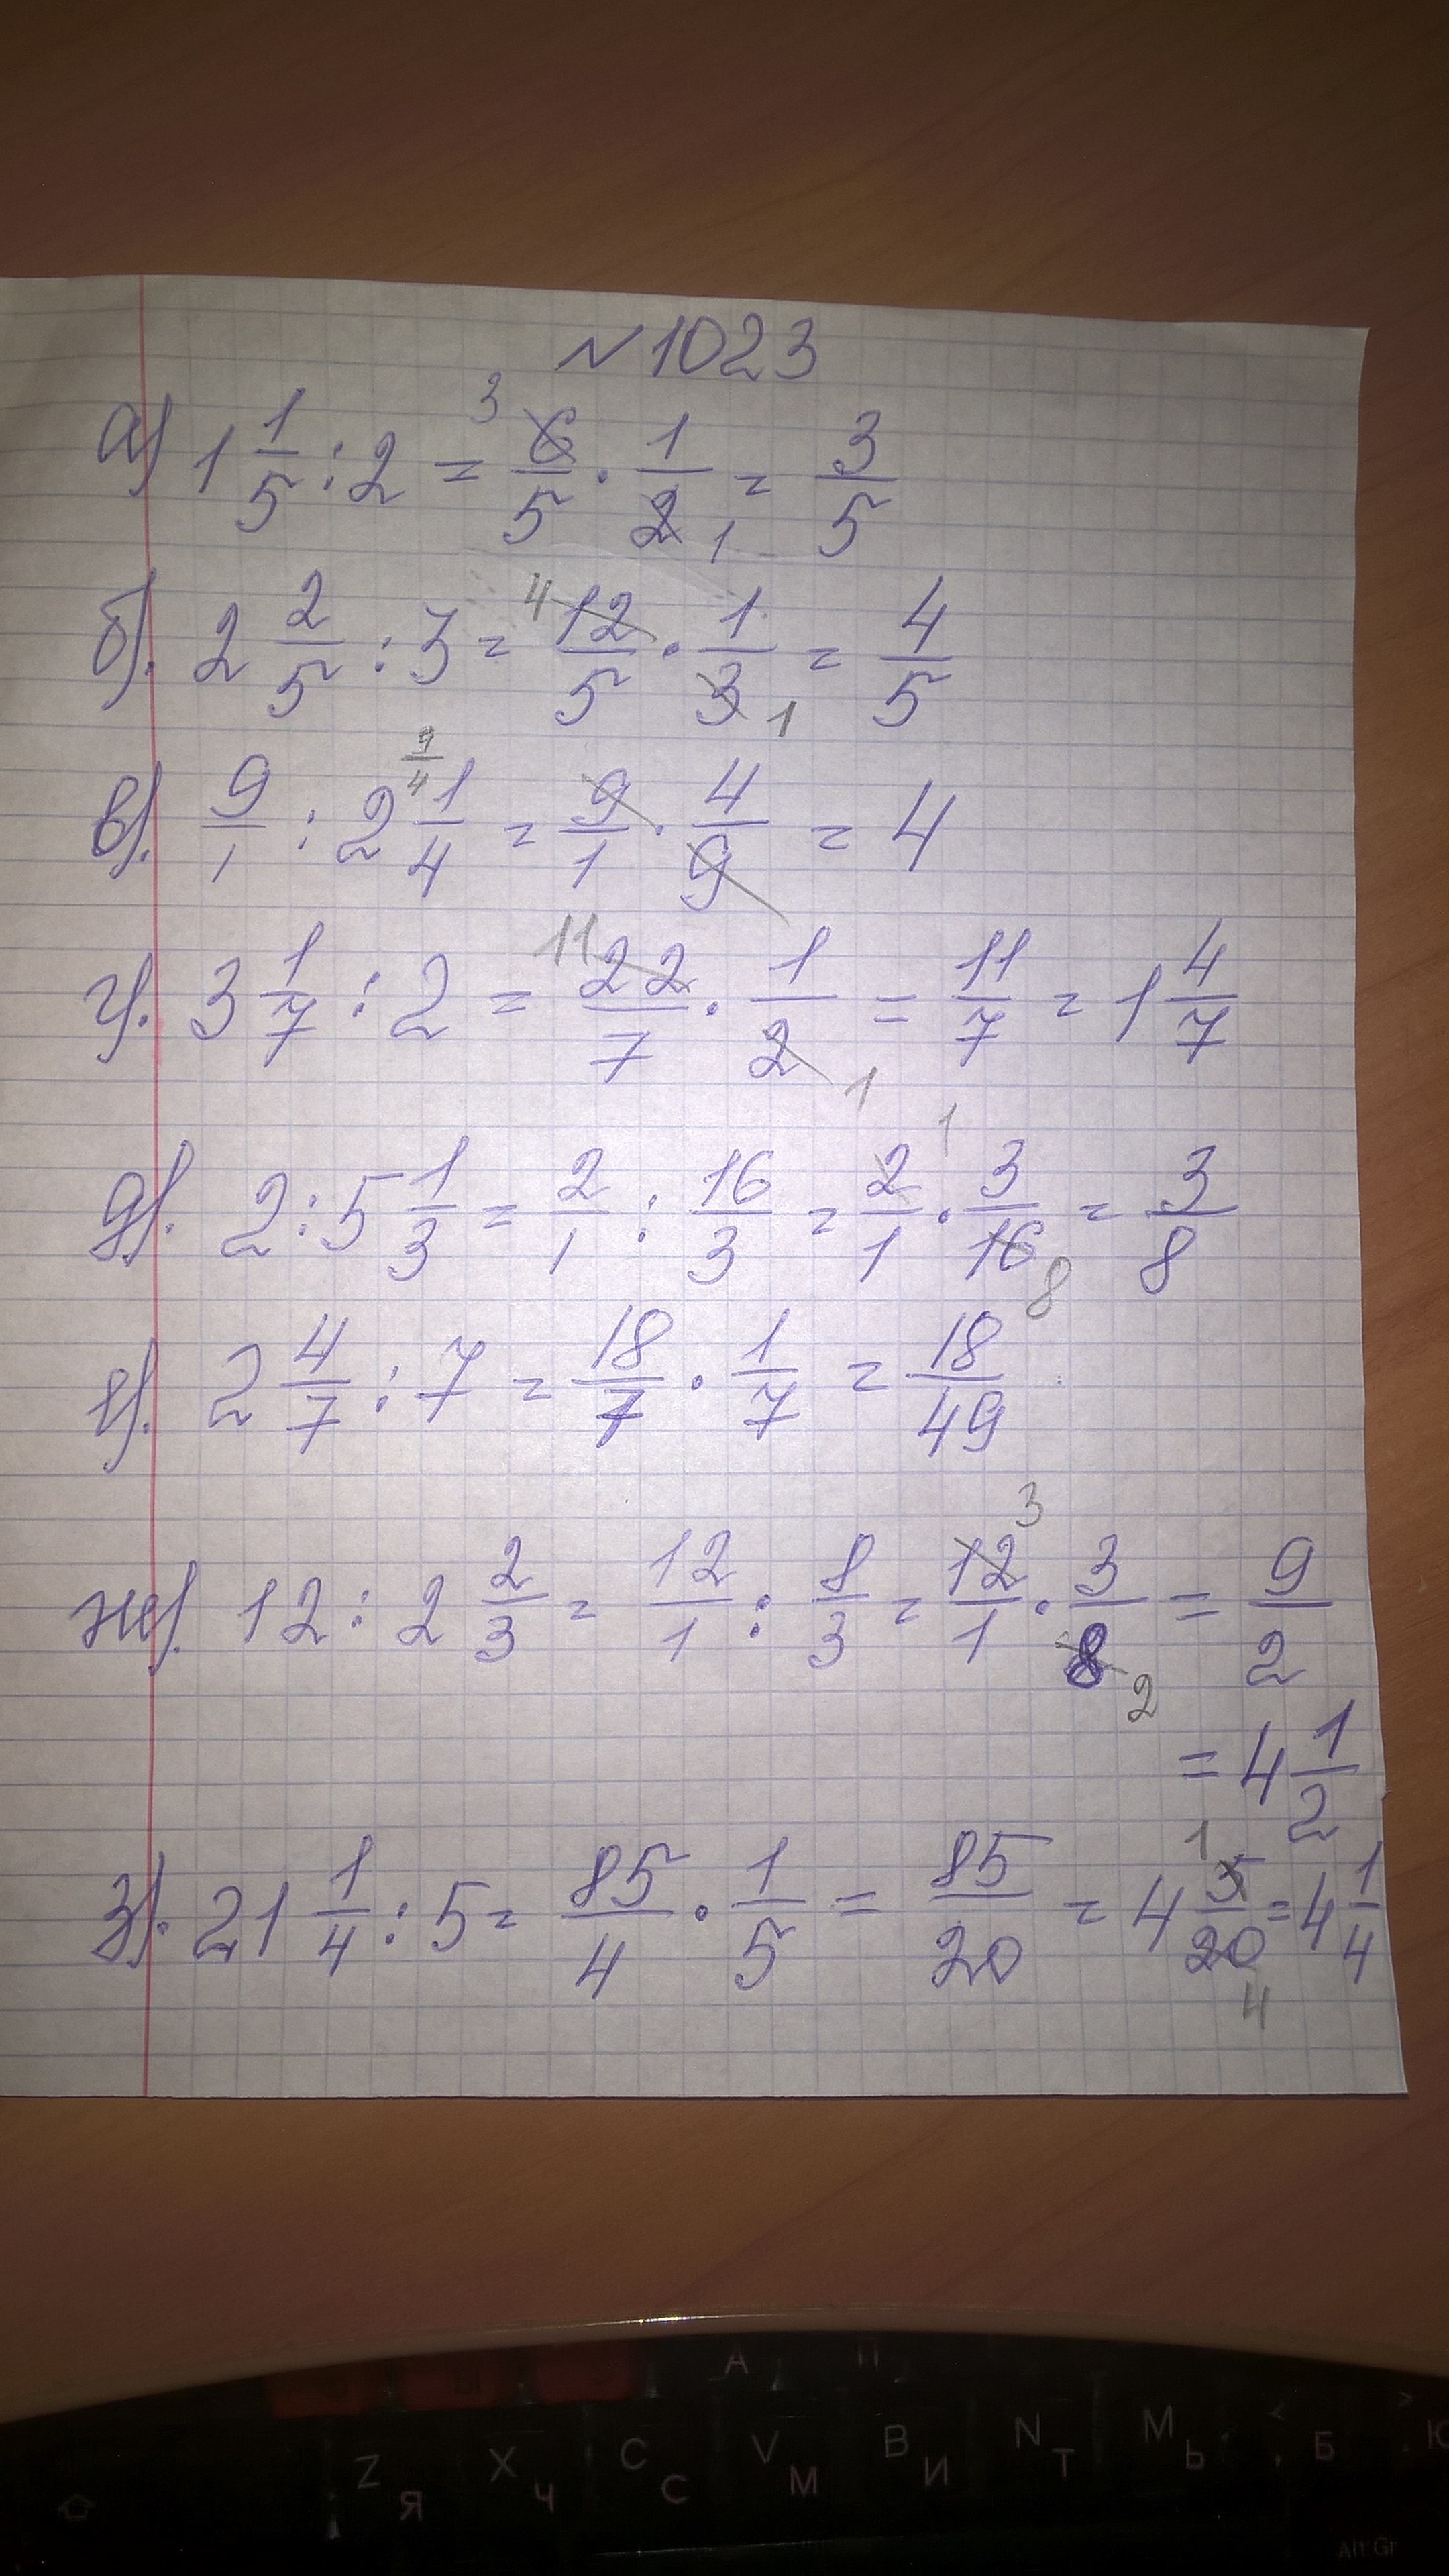 № 1023
а) 1 1/5 : 2 = 6/5 · 1/2 = 3/5
3 1
б). 2 2/5 : 3 = 12/5 · 1/3 = 4/5
4 1
в). 9/1 : 2 1/4 = 9/1 · 4/9 = 4
9/4
г). 3 1/7 : 2 = 22/7 · 1/2 = 11/7 = 1 4/7
11 1
д). 2 : 5 1/3 = 2/1 : 16/3 = 2/1 · 3/16 = 3/8
1 8
е). 2 4/7 : 7 = 18/7 · 1/7 = 18/49
ж). 12 : 2 2/3 = 12/1 : 8/3 = 12/1 · 3/8 = 9/2
3 2
= 4 1/2
з). 21 1/4 : 5 = 85/4 · 1/5 = 85/20 = 4 5/20 = 4 1/4
1 4
А П
Z X C V B N M < >
Я Ч С М И Т Ь , Б . Ю
Alt Gr